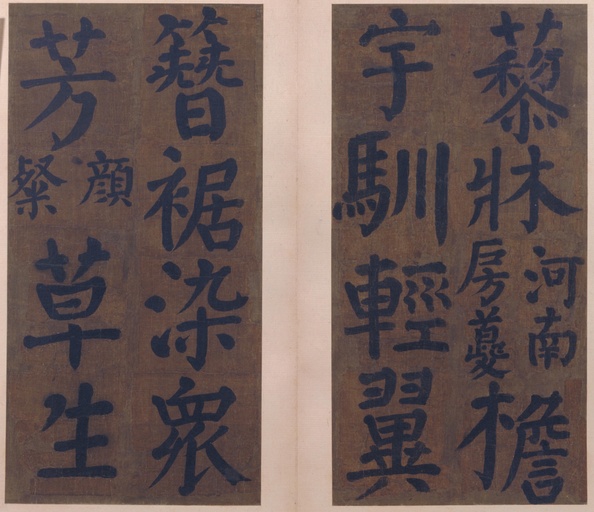 藜牀河南房夔檐
宇馴輕翼
簪裾染衆
芳顔粲草生